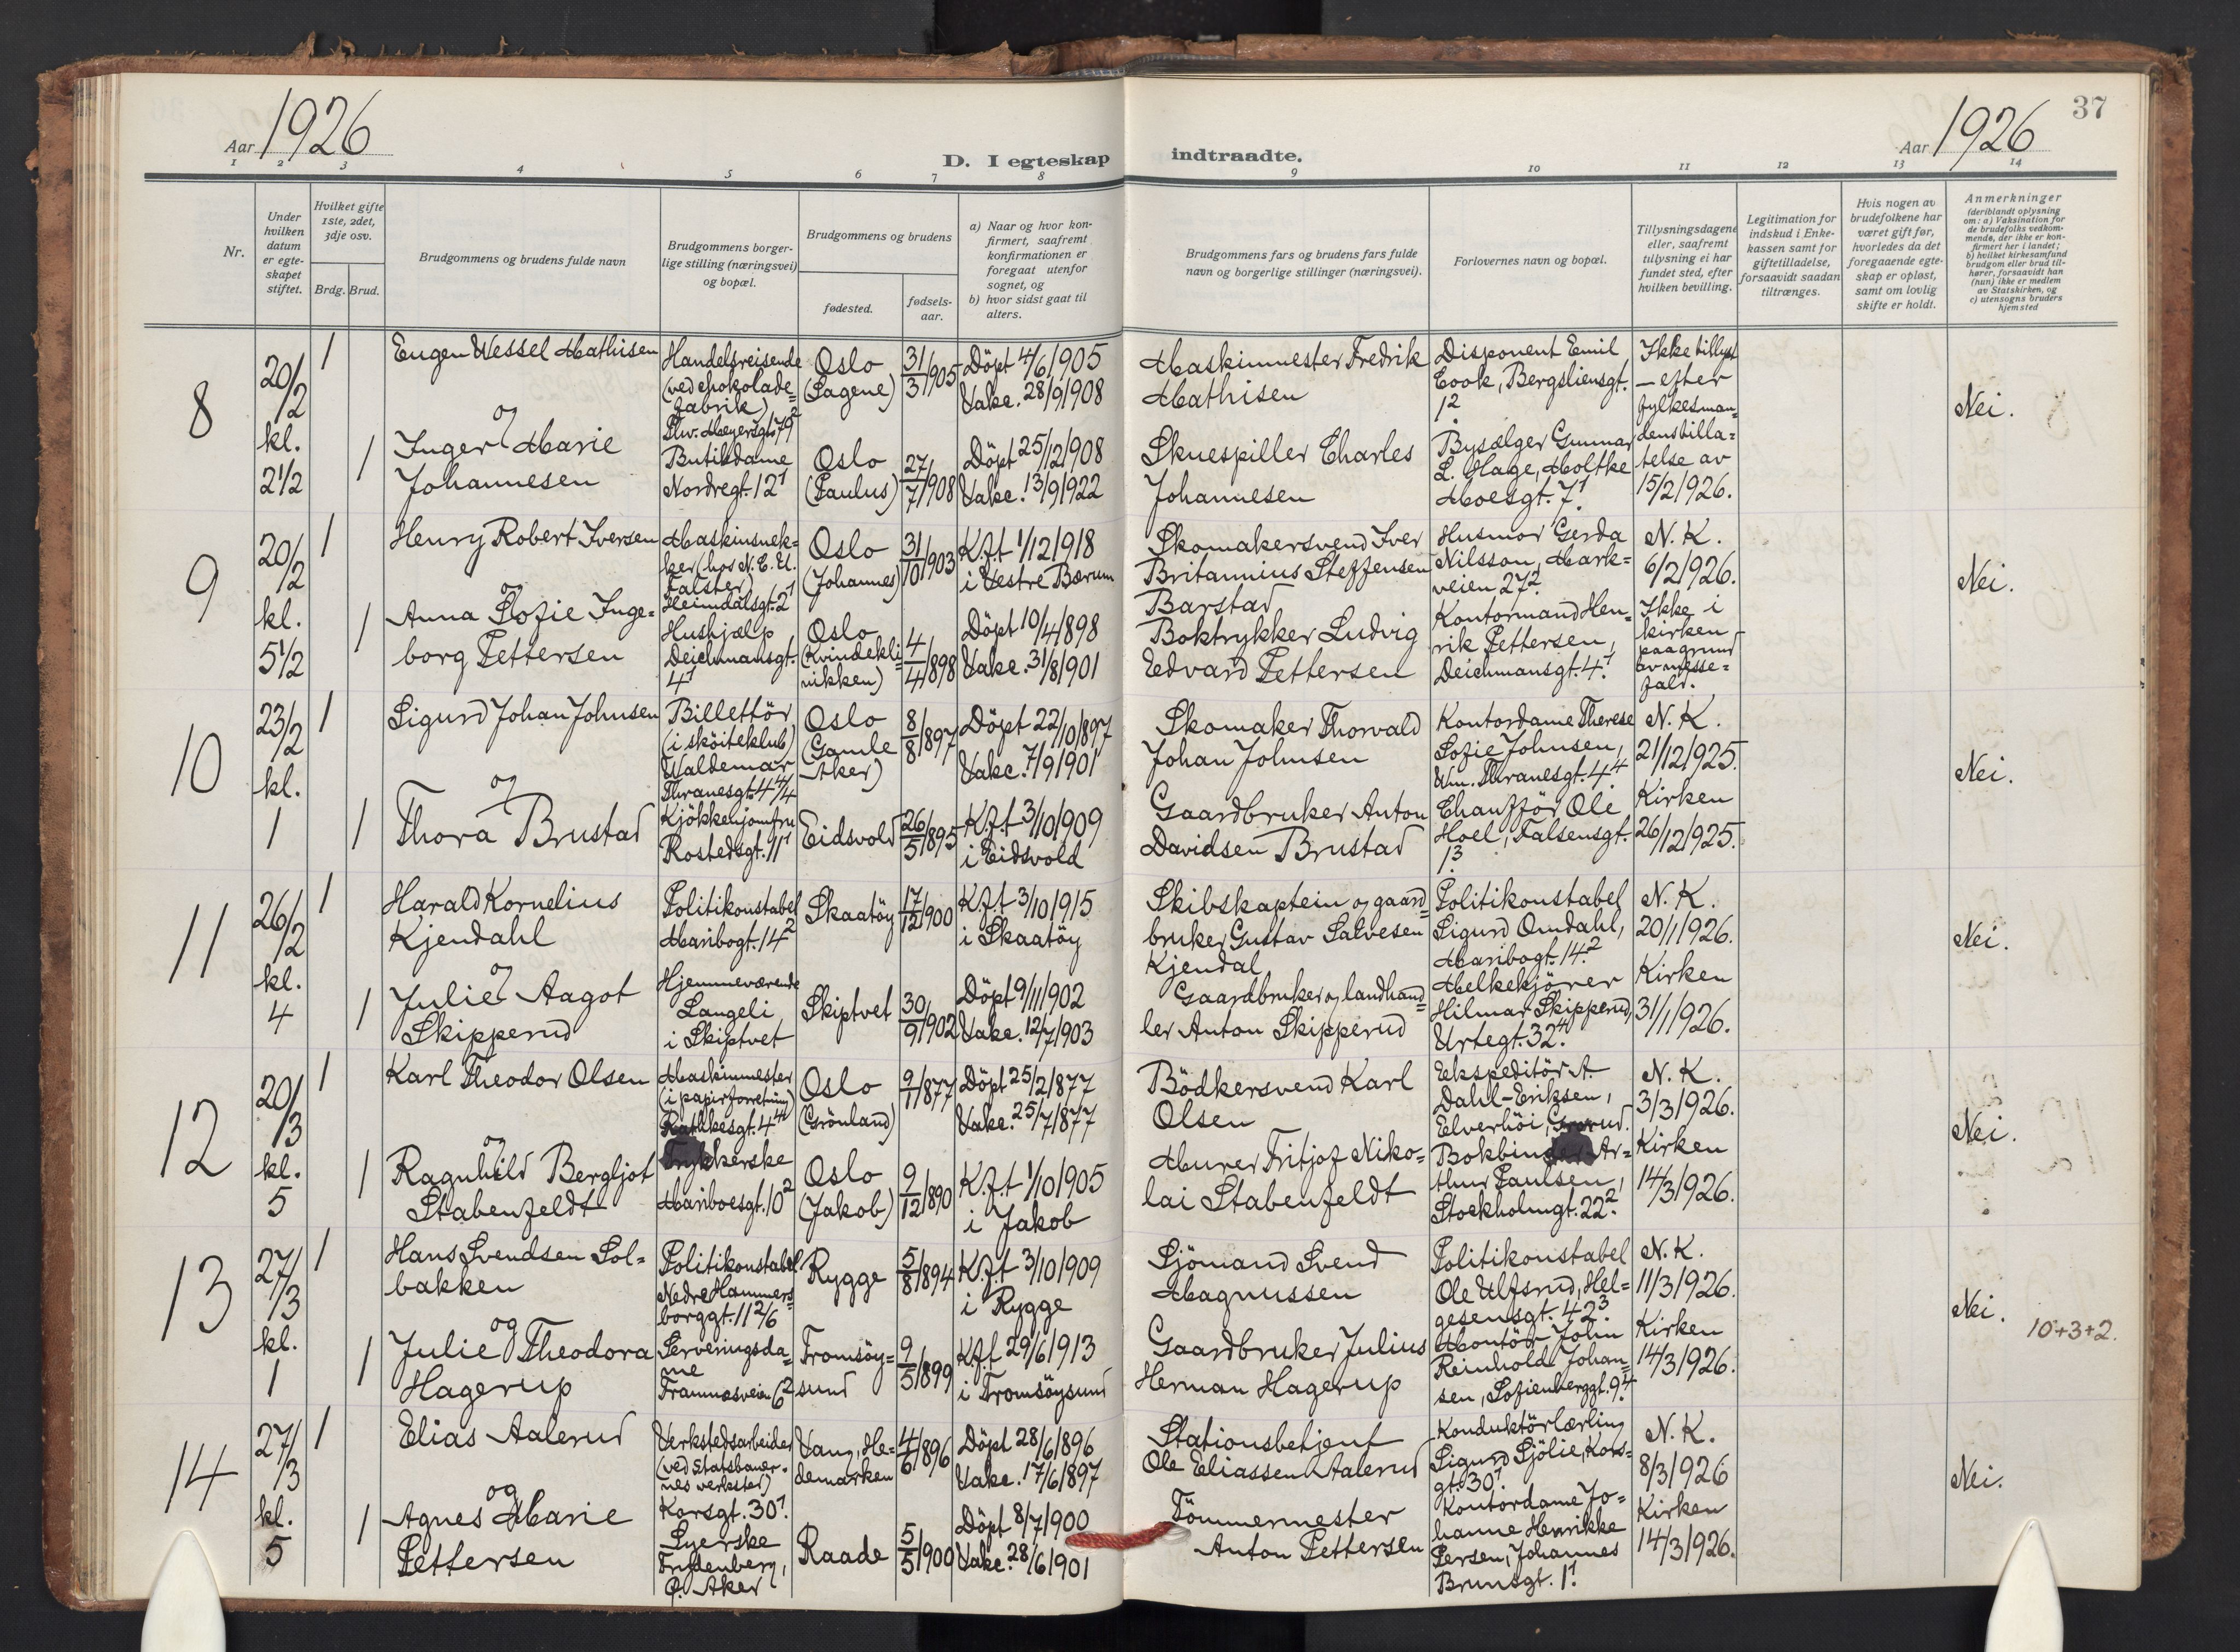 37
Aar 1926
D. I egteskap indtraadte.
Aar 1926
1 2 3 4 5 6 7 8 9 10 11 12 13 14
Nr.
Under hvilken datum er egteskapet stiftet.
Hvilket gifte 1ste, 2det, 3dje osv.
Brdg. Brud.
Brudgommens og brudens fulde navn
Brudgommens borgerlige stilling (næringsvei) og bopæl.
Brudgommens og brudens
fødested.
fødselsaar.
a) Naar og hvor konfirmert, saafremt konfirmationen er foregaat utenfor sognet, og
b) hvor sidst gaat til alters.
Brudgommens fars og brudens fars fulde navn og borgerlige stillinger (næringsvei).
Forlovernes navn og bopæl.
Tillysningsdagene eller, saafremt tillysning ei har fundet sted, efter hvilken bevilling.
Legitimation for indskud i Enkekassen samt for giftetilladelse, forsaavidt saadan tiltrænges.
Hvis nogen av brudefolkene har været gift før, hvorledes da det foregaaende egteskap er opløst, samt om lovlig skifte er holdt.
Anmerkninger
(deriblandt oplysning om: a) Vaksination for de brudefolks vedkommende, der ikke er konfirmert her i landet; b) hvilket kirkesamfund brudgom eller brud tilhører, forsaavidt han (hun) ikke er medlem av Statskirken, og c) utensogns bruders hjemsted
8
20/2
kl.
2½
1
Eugen Wessel Mathisen
og
Handelsreisende
(ved chokolade=
fabrik)
Thv. Meyersgt. 79²
Oslo
(Sagene)
31/3 1905
Döpt 4/6 1905
Vakc. 28/9 1908
Maskinmester Fredrik
Mathisen
Disponent Emil
Cook, Bergsliensgt.
1²
Ikke tillyst
– efter
fylkesman=
dens tilla=
telse av
15/2 1926.
Nei.
1
Inger Marie
Johannesen
Butikdame
Nordregt. 12¹
Oslo
(Paulus)
27/7 1908
Döpt 25/12 1908
Vakc. 13/9 1922
Skuespiller Charles
Johannesen
Bysælger Gunnar
L. Hage, Moltke
Moesgt. 7¹.
9
20/2
kl.
5½
1
Henry Robert Iversen
og
Maskinsnek=
ker (hos N. E. U.
Falster)
Heimdalsgt. 2¹
Oslo
(Johannes)
31/10 1903
Kft 1/12 1918
i Vestre Bærum
Skomakersvend Iver
Britannius Steffensen
Barstad
Husmor Gerda
Nilsson, Mark=
veien 27².
N. K.
6/2 1926.
Ikke i
kirken
paa grund
av messe=
fald.
Nei.
1
Anna Sofie Inge=
borg Pettersen
Hushjælp
Deichmansgt.
4¹
Oslo
(Kvindekli=
nikken)
4/4 1898
Döpt 10/4 1898
Vakc. 31/8 1901
Boktrykker Ludvig
Edvard Pettersen
Kontormand Hen=
rik Pettersen,
Deichmansgt. 4¹.
10
23/2
kl.
1
1
Sigurd Johan Johnsen
og
Billettör
(i sköiteklub)
Waldemar
Thranesgt. 4 4/4
Oslo
(Gamle
Aker)
8/8 1897
Döpt 22/10 1897
Vakc. 7/9 1901
Skomaker Thorvald
Johan Johnsen
Kontordame Therese
Sofie Johnsen,
Wm. Thranesgt. 4⁴
N. K.
21/12 1925.
Kirken
26/12 1925.
Nei.
1
Thora Brustad
Kjökkenjomfru
Rostedsgt. 11¹
Eidsvold
26/5 1895
Kft 3/10 1909
i Eidsvold
Gaardbruker Anton
Davidsen Brustad
Chaufför Ole
Hoel, Falsensgt.
1³.
11
26/2
kl.
4
1
Harald Kornelius
Kjendahl
og
Politikonstabel
Maribogt. 14²
Skaatöy
17/12 1900
Kft 3/10 1915
i Skaatöy
Skibskaptein og gaard=
bruker Gustav Salvesen
Kjendal
Politikonstabel
Sigurd Omdahl,
Maribogt. 14.²
N. K.
20/1 1926.
Kirken
31/1 1926.
Nei.
1
Julie Aagot
Skipperud
Hjemmeværende
Langeli
i Skiptvet
Skiptvet
30/9 1902
Döpt 9/11 1902
Vakc. 12/7 1903
Gaardbruker og landhand=
ler Anton Skipperud
Melkekjörer
Hilmar Skipperud,
Urtegt. 32⁴.
12
20/3
kl.
5
1
Karl Theodor Olsen
og
Maskinmester
(i papirforretning)
Rathkesgt. 4⁴
Oslo
(Grönland)
9/1 1877
Döpt 25/2 1877
Vakc. 25/7 1877
Bödkersvend Karl
Olsen
Ekspeditör A.
Dahl-Eriksen,
Elverhöi, Grorud.
N. K.
3/3 1926.
Kirken
14/3 1926.
Nei.
1
Ragnhild Bergljot
Stabenfeldt
Trykkerske
Mariboesgt. 10²
Oslo
(Jakob)
9/12 1890
Kft 1/10 1905
i Jakob
Murer Fritjof Niko=
lai Stabenfeldt
Bokbinder Ar=
thur Paulsen,
Stockholmgt. 22².
13
27/3
kl.
1
1
Hans Svendsen Sol=
bakken
og
Politikonstabel
Nedre Hammers=
borggt. 11 2/6
Rygge
5/8 1894
Kft 3/10 1909
i Rygge
Sjömand Svend
Magnussen
Politikonstabel
Ole Ulfsrud, Hel=
gesensgt. 42³
N. K.
11/3 1926.
Kirken
14/3 1926.
Nei.
10+3+2.
1
Julie Theodora
Hagerup
Serveringsda=
me
Framnæsveien 6²
Tromsöy=
sund
9/5 1899
Kft 29/6 1913
i Tromsöysund
Gaardbruker Julius
Herman Hagerup
Montör John
Reinholdt Johan=
sen, Sofienberggt. 9⁴.
14
27/3
kl.
5
1
Elias Aalerud
og
Verkstedsarbeider
(ved Statsbaner=
nes verksted)
Korsgt. 30¹.
Vang, He=
demarken
4/6 1896
Döpt 28/6 1896
Vakc. 17/6 1897
Stationsbetjent
Ole Eliassen Aalerud
Konduktörlærling
Sigurd Sjölie, Kors=
gt. 30¹.
N. K.
8/3 1926
Kirken
14/3 1926.
Nei.
1
Agnes Marie
Pettersen
Syerske
Frydenberg,
Ö. Aker
Raade
5/5 1900
Döpt 8/7 1900
Vakc. 28/6 1901
Tömmermester
Anton Pettersen
Kontordame Jo=
hanne Henrikke
Persen, Johannes
Brunsgt. 1¹.